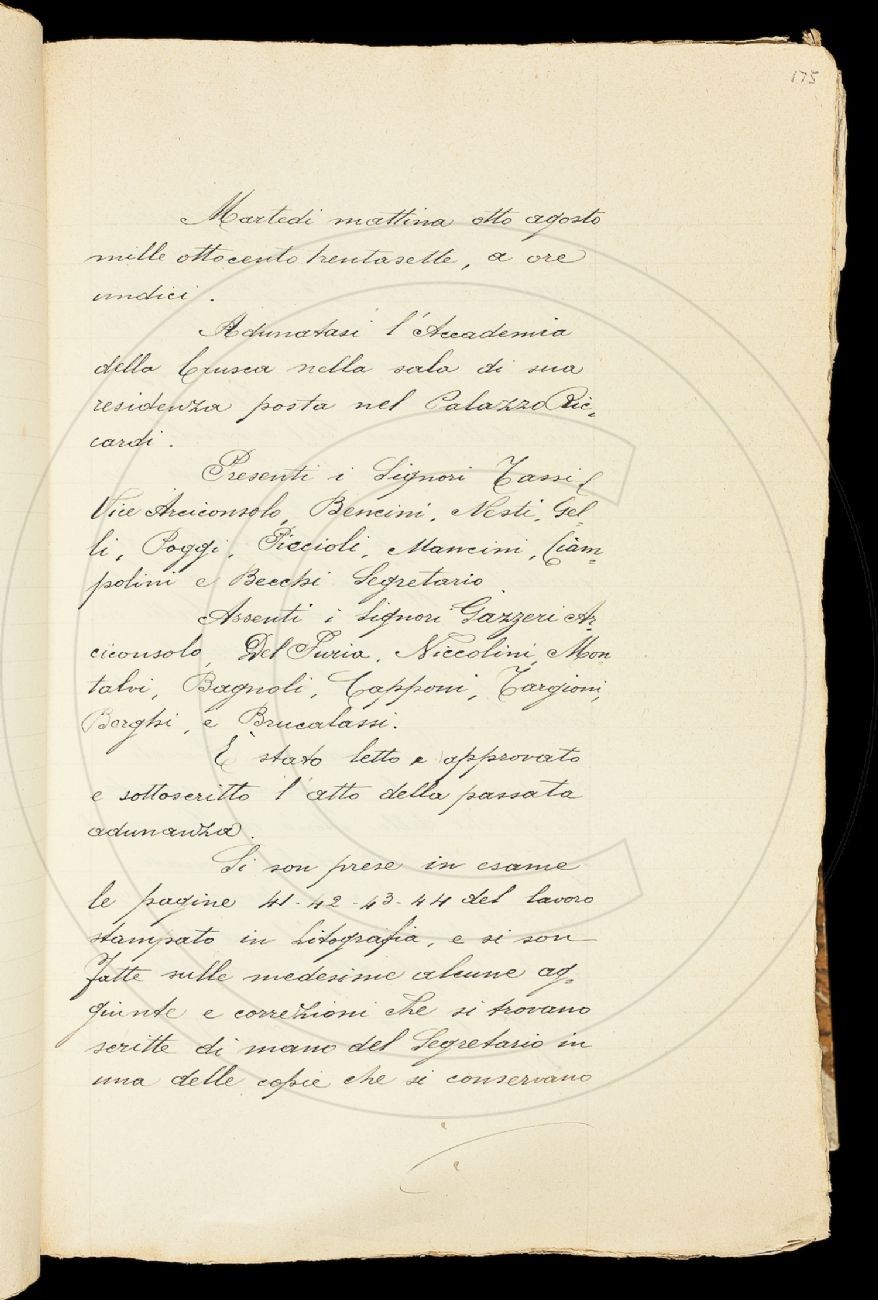 175
Martedi mattina otto agosto
mille ottocento trentasette, a ore
undici.
Adunatasi l'Accademia
della Crusca nella sala di sua
residenza posta nel Palazzo Ric-
cardi.
Presenti i Signori Tassi
Vice Arciconsolo, Bencini, Nesti, Gel-
li, Poggi, Piccioli, Mancini, Ciam-
polini e Becchi Segretario
Assenti i Signori Gazzeri Ar-
ciconsolo, Del Furia, Niccolini, Mon
talvi, Bagnoli, Capponi, Targioni,
Borghi, e Brucalassi.
È stato letto e approvato
e sottoscritto l'atto della passata
adunanza.
Si son prese in esame
le pagine 41-42-43-44 del lavoro
stampato in litografia, e si son
fatte sulle medesime alcune ag-
giunte e correzioni che si trovano
scritte di mano del Segretario in
una delle copie che si conservano